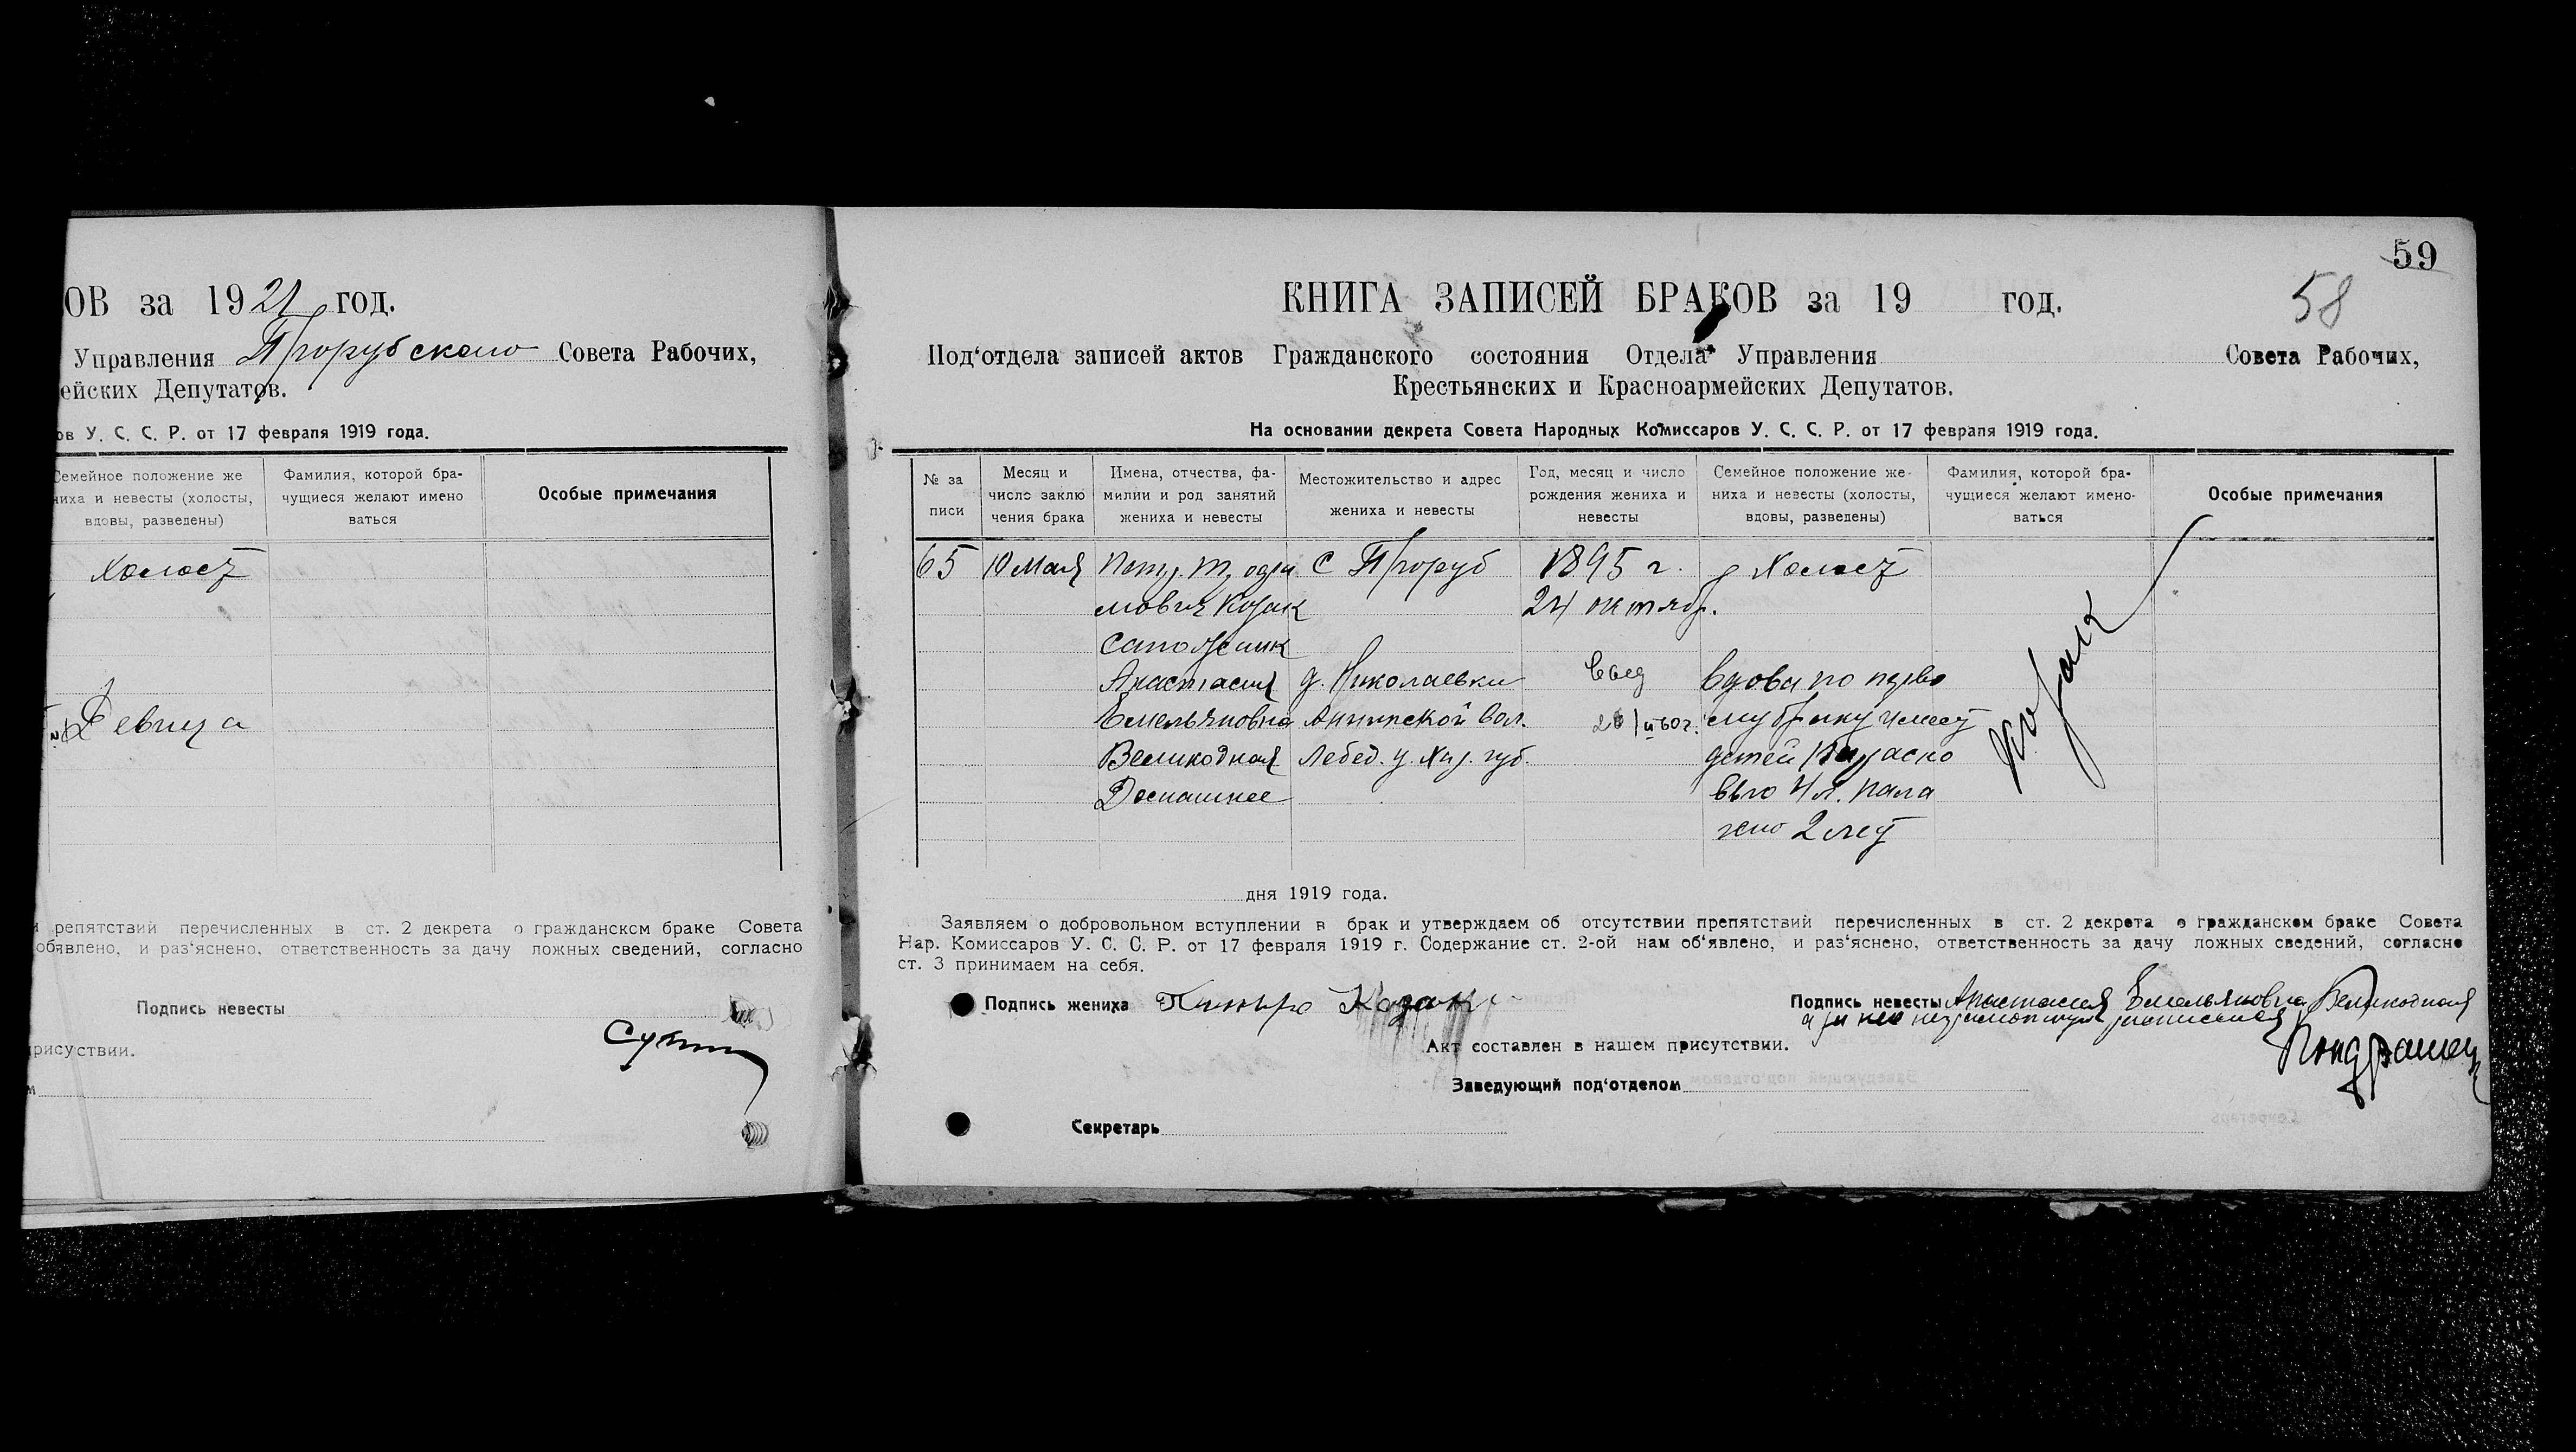 ОВ за 1921 год.
Управления Прорубского Совета Рабочих,
ейских Депутатов.
ов У. С. С. Р. от 17 февраля 1919 года.
Семейное положение же
ниха и невесты (холосты,
вдовы, разведены)
Фамилия, которой бра-
чущиеся желают имено
ваться
Особые примечания
Холост
Девица
репятствий перечисленных в ст. 2 декрета о гражданском браке Совета
обявлено, и раз‘яснено, ответственность за дачу ложных сведений, согласно
Подпись невесты
рисуствии.
59
58
КНИГА ЗАПИСЕЙ БРАКОВ за 19 год.
Под‘отдела записей актов Гражданского состояния Отдела Управления Совета Рабочих,
Крестьянских и Красноармейских Депутатов.
На основании декрета Совета Народных Комиссаров У. С. С. Р. от 17 февраля 1919 года.
№ за
писи
Месяц и
число заклю
чения брака
Имена, отчества, фа-
милии и род занятий
жениха и невесты
Местожительство и адрес
жениха и невесты
Год, месяц и число
рождения жениха и
невесты
Семейное положение же-
ниха и невесты (холосты,
вдовы, разведены)
Фамилия, которой бра-
чущиеся желают имено-
ваться
Особые примечания
65 10 Мая С Проруб 1895 г. Холост
мович Козак 24 октябр.
сапожник
Анастасия д. Николаевки вдова по перво
Емельяновна Анинской вол. му браку имеет
Великодная Лебед. у. Хар. губ. детей
Домашнее
2 лет
Козак
дня 1919 года.
Заявляем о добровольном вступлении в брак и утверждаем об отсутствии препятствий перечисленных в ст. 2 декрета о гражданском браке Совета
Нар. Комиссаров У. С. С. Р. от 17 февраля 1919 г. Содержание ст. 2-ой нам об‘явлено, и раз‘яснено, ответственность за дачу ложных сведений, согласно
ст. 3 принимаем на себя.
Подпись жениха Козак
Подпись невесты Анастасия Емельяновна Великодная
Акт составлен в нашем присутствии.
Заведующий под‘отделом
Секретарь